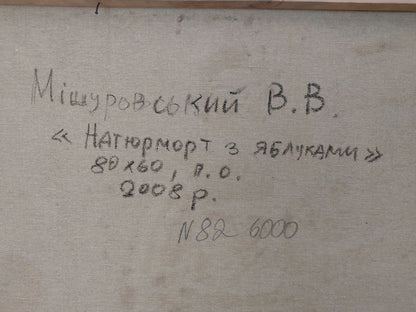 Мішуровський В.В.
« Натюрморт з яблуками »
80х60, п.о.
2008 р.
N82 6000